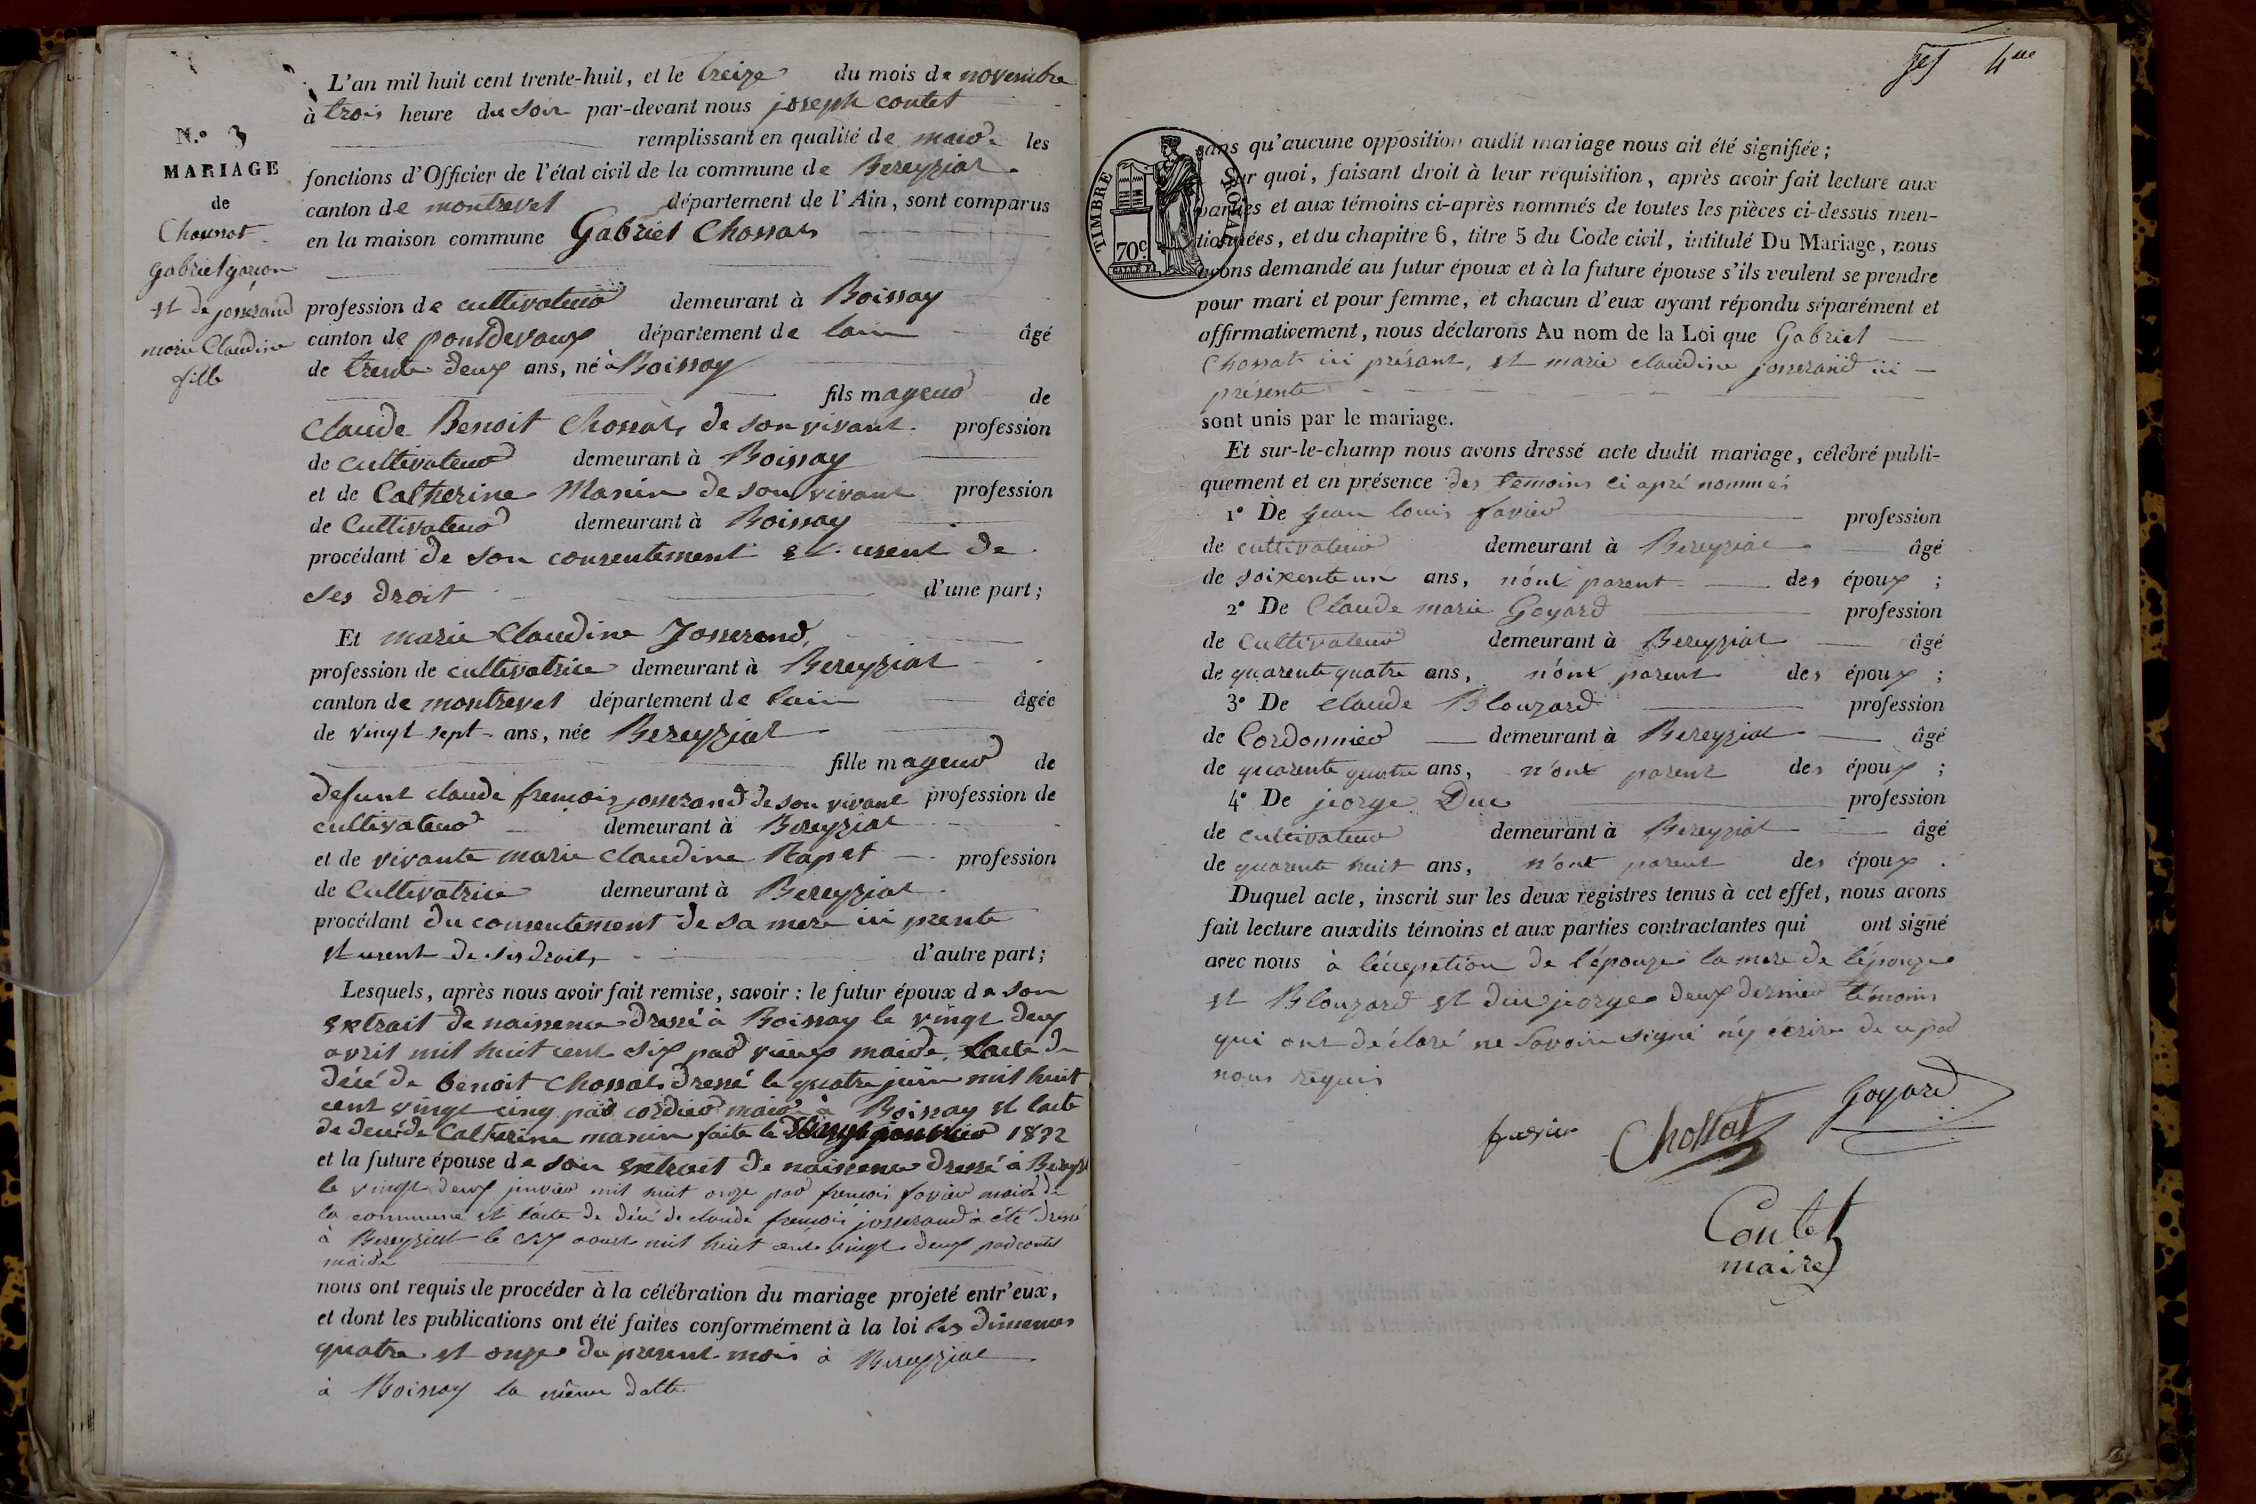 N.º 3
MARIAGE
de
Chaussat
gabriel garçon
et de josserand
marie Claudine
fille
L'an mil huit cent trente-huit, et le treize du mois de novembre
à trois heure du soir par-devant nous joseph coutet
remplissant en qualité de maire les
fonctions d'Officier de l'état civil de la commune de Bereyziat
canton de montrevel département de l'Ain, sont comparus
en la maison commune Gabriel Chossat
profession de cultivateur demeurant à Boissay
canton de pontdevaux département de lain âgé
de trente deux ans, né à Boissay
fils mageur de
Claude Benoit Chossat, de son vivant profession
de cultivateur demeurant à Boissay
et de Catherine Manin de son vivant profession
de Cultivateur demeurant à Boissay
procédant de son consentement et usent de
ses droit d'une part;
Et marie Claudine Josserand,
profession de cultivatrice demeurant à Bereyziat
canton de montrevel département de lain âgée
de vingt sept ans, née Bereyziat
fille mageur de
defunt claude françois josserand de son vivant profession de
cultivateur demeurant à Bereyziat
et de vivante marie claudine Rapet profession
de Cultivatrice demeurant à Bereyziat
procédant du consentement de sa mere ici prente
et usent de ses droits d'autre part;
Lesquels, après nous avoir fait remise, savoir: le futur époux de son
extrait de naissence dressé à Boissay le vingt deux
avril mil huit cent six par vieux maire, lacte de
décé de benoit Chossat dressé le quatre juin mil huit
cent vingt cinq par cordier maire à Boissay et lacte
de decé de Catherine manin faite le 1832
et la future épouse de son extrait de naissence dressé à Bereyzt
le vingt deux janvier mil huit onze par françois favier maire de
la commune et lacte de décé de claude françois josserand à été dressé
à Bereyziat le six aoust mil huit cent vingt deux par coutet
maire
nous ont requis de procéder à la célébration du mariage projeté entr'eux,
et dont les publications ont été faites conformément à la loi les dimences
quatre et onze du present mois à Bereyziat
à Boissay la même datte
4me
TIMBRE ROYAL
70c
sans qu'aucune opposition audit mariage nous ait été signifiée;
Sur quoi, faisant droit à leur réquisition, après avoir fait lecture aux
parties et aux témoins ci-après nommés de toutes les pièces ci-dessus men-
tionnées, et du chapitre 6, titre 5 du Code civil, intitulé Du Mariage, nous
avons demandé au futur époux et à la future épouse s'ils veulent se prendre
pour mari et pour femme, et chacun d'eux ayant répondu séparément et
affirmativement, nous déclarons Au nom de la Loi que Gabriel
Chossat ici présant, et marie claudine josserand ici
présente
sont unis par le mariage.
Et sur-le-champ nous avons dressé acte dudit mariage, célébré publi-
quement et en présence des témoins ci apré nommés
1º De jean louis favier profession
de cultivateur demeurant à Bereyziat âgé
de soixente un ans, n'ont parent des époux;
2º De Claude marie Goyard profession
de Cultivateur demeurant à Bereyziat âgé
de quarente quatre ans, n'ont parent des époux;
3º De claude Blouzard profession
de Cordonnier demeurant à Bereyziat âgé
de quarente quatre ans, n'ont parent des époux;
4º De jeorge Duc profession
de cultivateur demeurant à Bereyziat âgé
de quarente huit ans, n'ont parent des époux.
Duquel acte, inscrit sur les deux registres tenus à cet effet, nous avons
fait lecture auxdits témoins et aux parties contractantes qui ont signé
avec nous à l'écepetion de l'épouze la mere de l'épouze
et Blouzard et duc jeorge deux dernier témoins
qui ont déclaré ne savoire signé n'y écrire de ce par
nous requis
favier Chossat Goyard
Coutet
maire